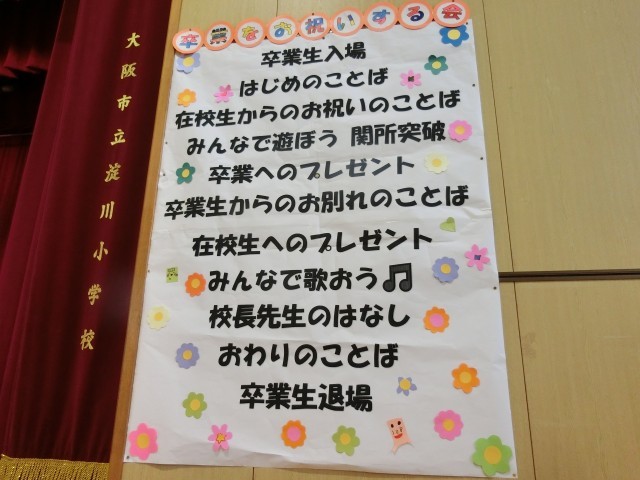 卒業をお祝いする会
卒業生入場
はじめのことば
在校生からのお祝いのことば
みんなで遊ぼう 関所突破
卒業へのプレゼント
卒業生からのお別れのことば
在校生へのプレゼント
みんなで歌おう♫
校長先生のはなし
おわりのことば
卒業生退場
大阪市立淀川小学校